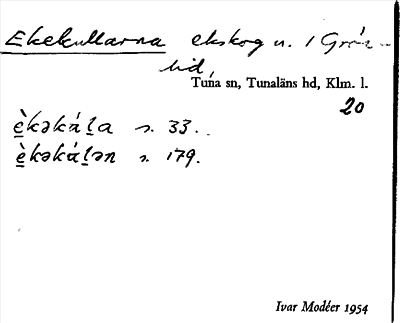 Ekekullarna ekskog n. i Grön-
lid,
Tuna sn, Tunaläns hd, Klm. l.
20
è̱kəká́ḻa s. 33.
è̱kəká́ḻən s. 179.
Ivar Modéer 1954